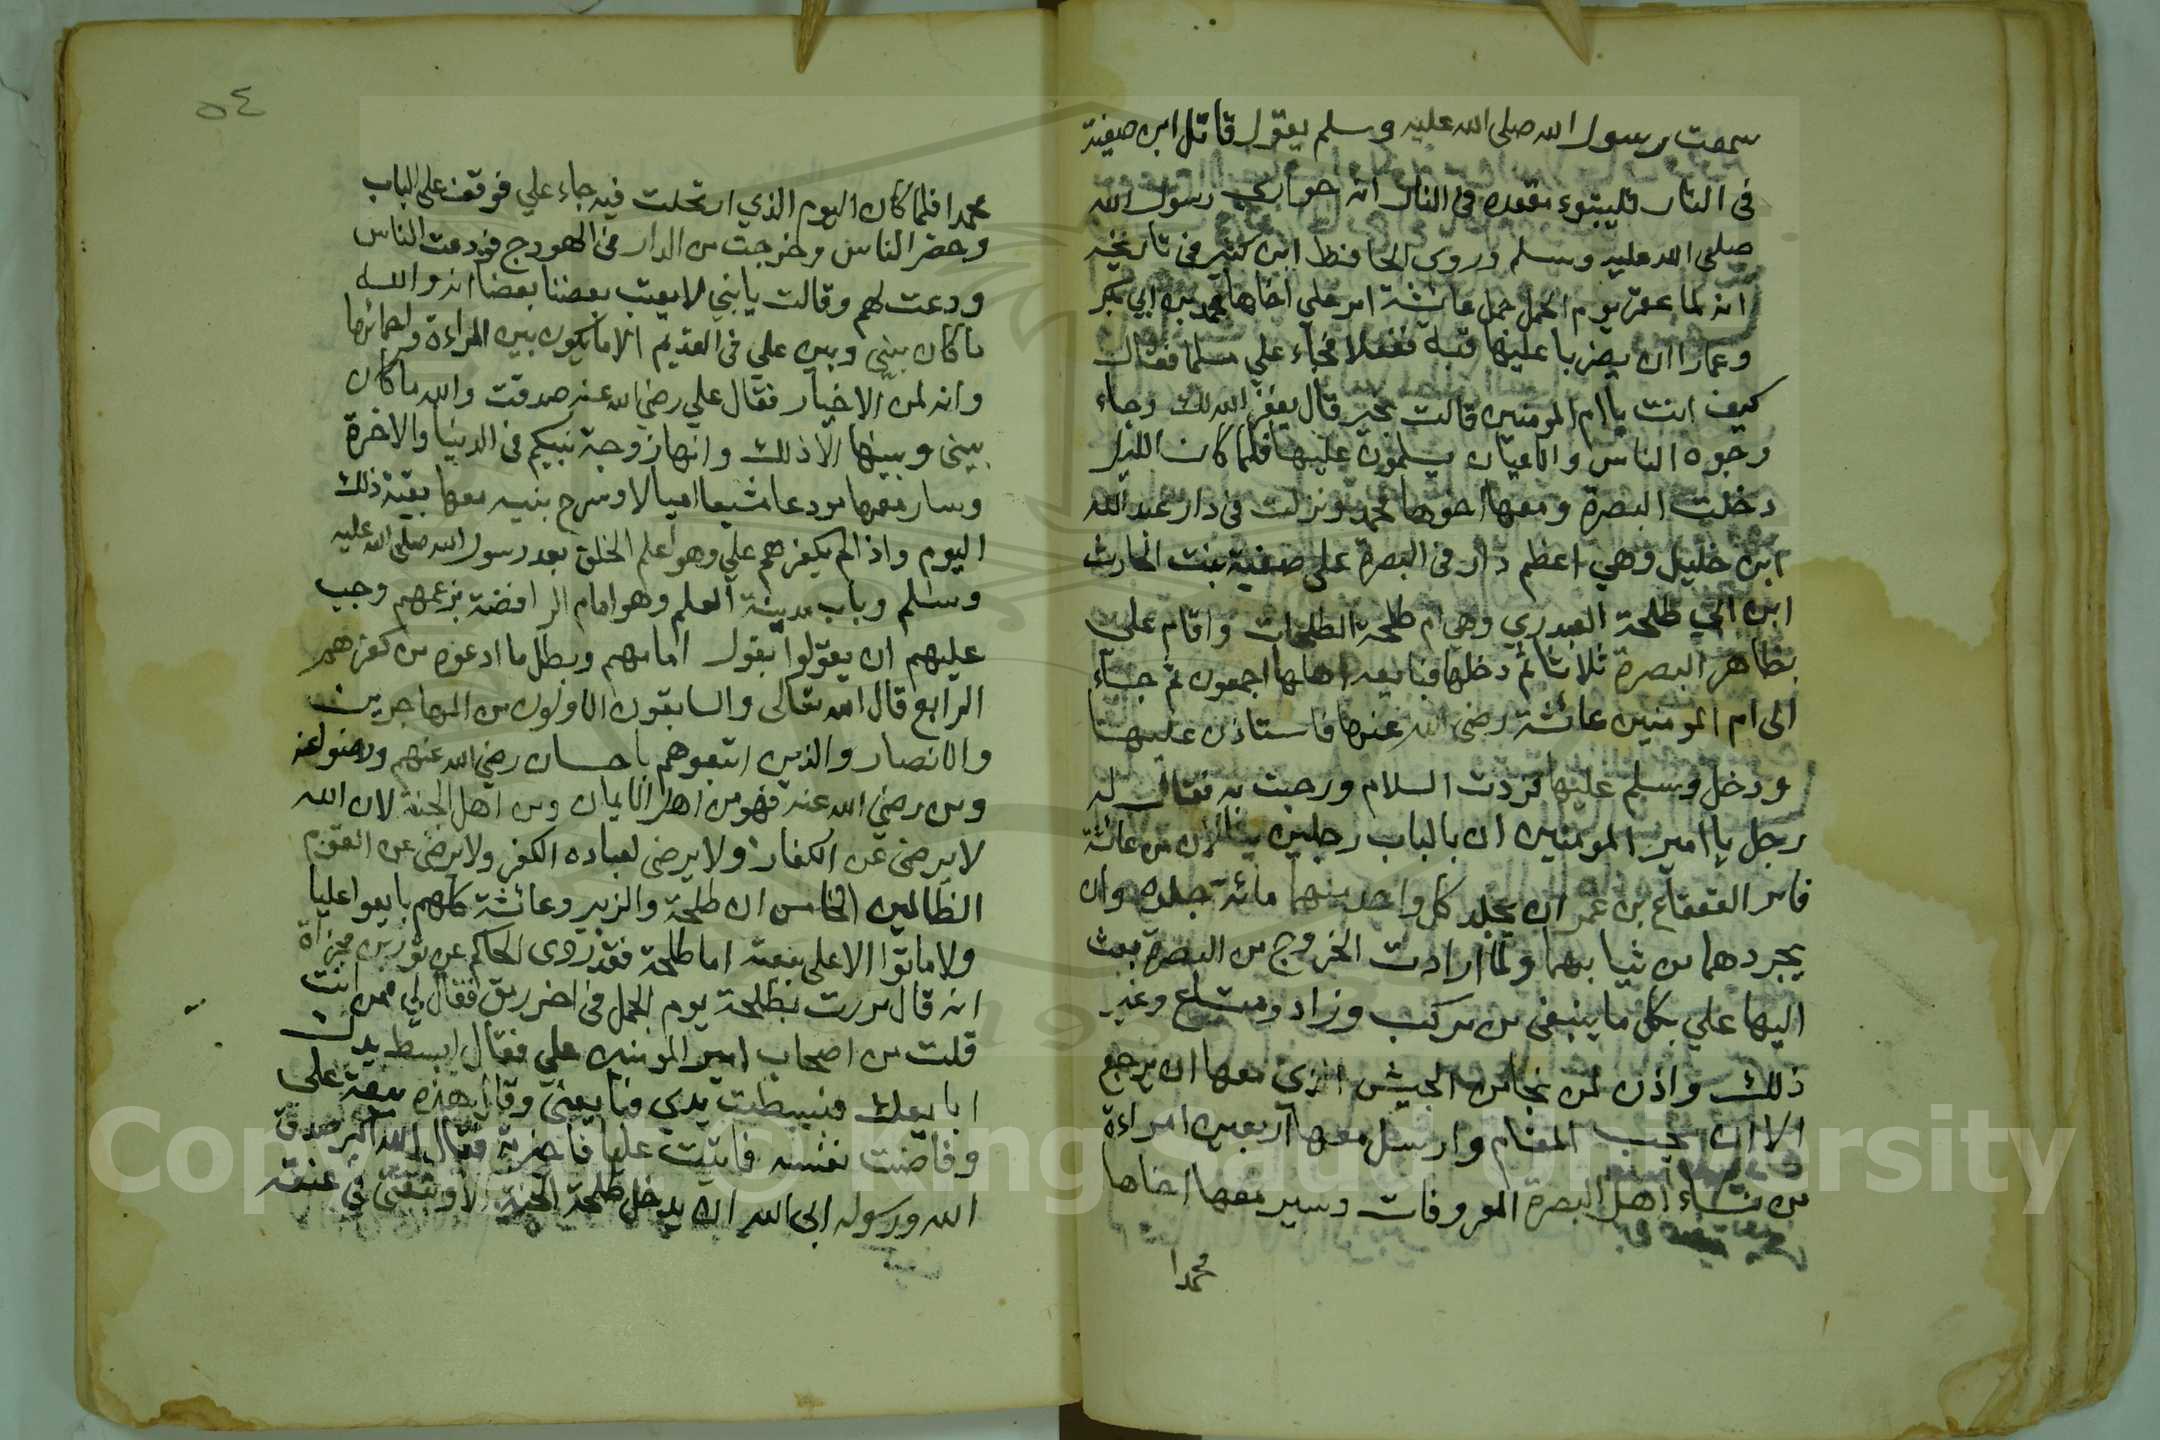 سمعت رسول الله صلى الله عليه وسلم يقول قاتل ابن صفية
في النار فليتبوء مقعده في النار انه حواري رسول الله
صلى الله عليه وسلم وروى الحافظ ابن كثير في تاريخه
انه لما عقر يوم الجمل جمل عائشة امر علي اخاها محمد بن ابي بكر
وعمارا ان يضربا عليها قبة ففعلا فجاء علي مسلما فقال
كيف انت يا ام المومنين قالت بخير قال يغفر الله لك وجاء
وجوه الناس والاعيان يسلمون عليها فلما كان الليل
دخلت البصرة ومعها اخوها محمد ونزلت في دار عبد الله
ابن خليل وهي اعظم دار في البصرة على صفية بنت الحارث
ابن ابي طلحة العبدري وهي ام طلحة الطلحات واقام علي
بظاهر البصرة ثلاثا ثم دخلها فبايعه اهلها اجمعون ثم جاء
الى ام المومنين عائشة رضي الله عنها فاستاذن عليها
ودخل وسلم عليها فردت السلام ورحبت به فقال له
رجل يا امير المومنين ان بالباب رجلين ينالان من عائشة
فامر القعقاع بن عمر ان يجلد كل واحد منهما مائة جلدة وان
يجردهما من ثيابهما ولما ارادت الخروج من البصرة بعث
اليها علي بكل ما ينبغي من مركب وزاد ومتاع وغير
ذلك واذن لمن نجا من الجيش الذي معها ان يرجع
الا ان يحب المقام وارسل معها اربعين امراءة
من نساء اهل البصرة المعروفات وسير معها اخاها
محمدا
٥٤
محمدا فلما كان اليوم الذي ارتحلت فيه جاء علي فوقف على الباب
وحضر الناس وخرجت من الدار في الهودج فودعت الناس
ودعت لهم وقالت يا بني لا يعتب بعضنا بعضا انه والله
ما كان بيني وبين علي في القديم الا ما يكون بين المراءة واحمائها
وانه لمن الاخيار فقال علي رضي الله عنه صدقت والله ما كان
بيني وبينها الا ذلك وانها زوجة نبيكم في الدنيا والاخرة
وسار معها مودعا مشيعا اميالا وسرح بنيه معها بقية ذلك
اليوم واذا لم يكفرهم علي وهو اعلم الخلق بعد رسول الله صلى الله عليه
وسلم وباب مدينة العلم وهو امام الرافضة بزعمهم وجب
عليهم ان يقولوا بقول امامهم وبطل ما ادعوه من كفرهم
الرابع قال الله تعالى والسابقون الاولون من المهاجرين
والانصار والذين اتبعوهم باحسان رضي الله عنهم ورضوا عنه
ومن رضي الله عنه فهو من اهل الايمان ومن اهل الجنة لان الله
لا يرضى عن الكفار ولا يرضى لعباده الكفر ولا يرضى عن القوم
الظالمين الخامس ان طلحة والزبير وعائشة كلهم بايعوا عليا
ولا ماتوا الا على بيعته اما طلحة فقد روى الحاكم عن ثور بن مجزاة
انه قال مررت بطلحة يوم الجمل في اخر رمق فقال لي ممن انت
قلت من اصحاب امير المومنين علي فقال ابسط يدك
ابايعك فبسطت يدي فبايعني وقال هذه بيعة علي
وفاضت نفسه فاتيت عليا فاخبرته فقال الله اكبر صدق
الله ورسوله ابى الله ان يدخل طلحة الجنة الا وبيعتي في عنقه
Copyright © King Saud University